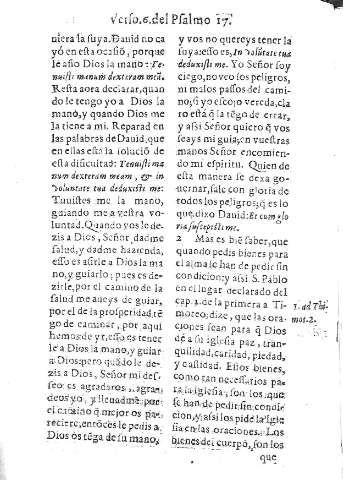 Verso.6.del Psalmo 17.
niera la suya. Dauid no ca
yó en esta ocasió, porque
le asio Dios la mano: Te-
nuisti manum dexteram meā.
Resta aora declarar, quan
do le tengo yo a Dios la
mano, y quando Dios me
la tiene a mi. Reparad en
las palabras de Dauid, que
en ellas està la solució de
esta dificultad: Tenuisti ma
num dexteram meam, & in
voluntate tua deduxisti me:
Tuuistes me la mano,
guiando me a vestra vo-
luntad. Quando vos le de-
zis a Dios, Señor, dadme
salud, y dadme hazienda,
esso es asirle a Dios la ma
no, y guiarlo; pues es de-
zirle, por el camino de la
salud me aueys de guiar,
por el de la prosperidad, tē
go de caminar, por aqui
hemos de yr, esso es tener
le a Dios la mano, y guiar
a Dios: pero quādo le de-
zis a Dios, Señor mi des-
seo es agradaros, agran-
deos yo, y lleuadme por
el camino q̄ mejor os pa-
reciere, entóces le pedis a
Dios os tēga de su mano,
y vos no quereys tener la
suya: esso es, In volūtate tua
deduxisti me. Yo Señor soy
ciego, no veo los peligros,
ni malos passos del cami-
no; si yo escojo vereda, cla
ro està q̄ la tēgo de errar,
y assi Señor quiero q̄ vos
seays mi guia; en vuestras
manos Señor encomien-
do mi espiritu. Quien de
esta manera se dexa go-
uernar, sale con gloria de
todos los peligros; q̄ es lo
que dixo Dauid: Et cum glo
ria suscepisti me.
2 Mas es biē saber, que
quando pedis bienes para
el alma se han de pedir sin
condicion: y assi S. Pablo
en el lugar declarado del
cap. 2. de la primera a Ti-
moteo; dize, que las ora-
ciones sean para q̄ Dios
dè a su iglesia paz, tran-
quilidad, caridad, piedad,
y castidad. Estos bienes,
como tan necessarios pa-
ra la iglesia, son los que
se han de pedir sin condi-
cion, y assi los pide la Igle-
sia en las oraciones. Los
bienes del cuerpo, son los
que
1. ad Tim
mot. 2.